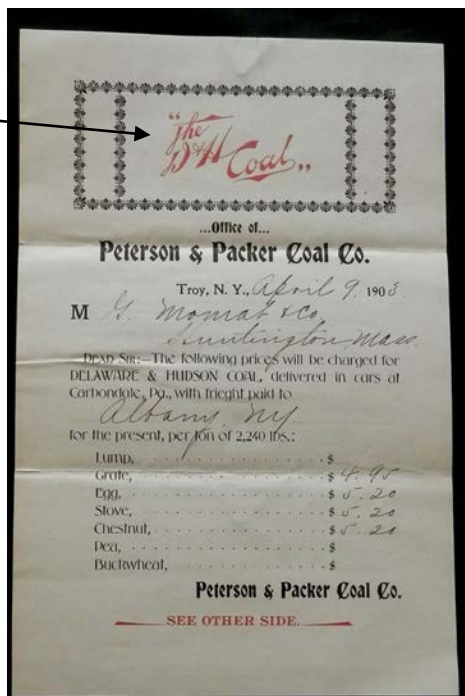 "The
D & H Coal"
...Office of...
Peterson & Packer Coal Co.
Troy, N. Y., April 9. 1903
M G. Momat & Co,
Huntington Mass.
DEAR SIR:—The following prices will be charged for
DELAWARE & HUDSON COAL, delivered in cars at
Carbondale, Pa., with frieght paid to
Albany, NY.
for the present, per ton of 2,240 lbs.:
Lump, . . . . . . . . . . . . . . $
Grate, . . . . . . . . . . . . . . $ 4.95
Egg, . . . . . . . . . . . . . . $ 5.20
Stove, . . . . . . . . . . . . . . $ 5.20
Chestnut, . . . . . . . . . . . . . . $ 5.20
Pea, . . . . . . . . . . . . . . $
Buckwheat, . . . . . . . . . . . . . . $
Peterson & Packer Coal Co.
SEE OTHER SIDE.